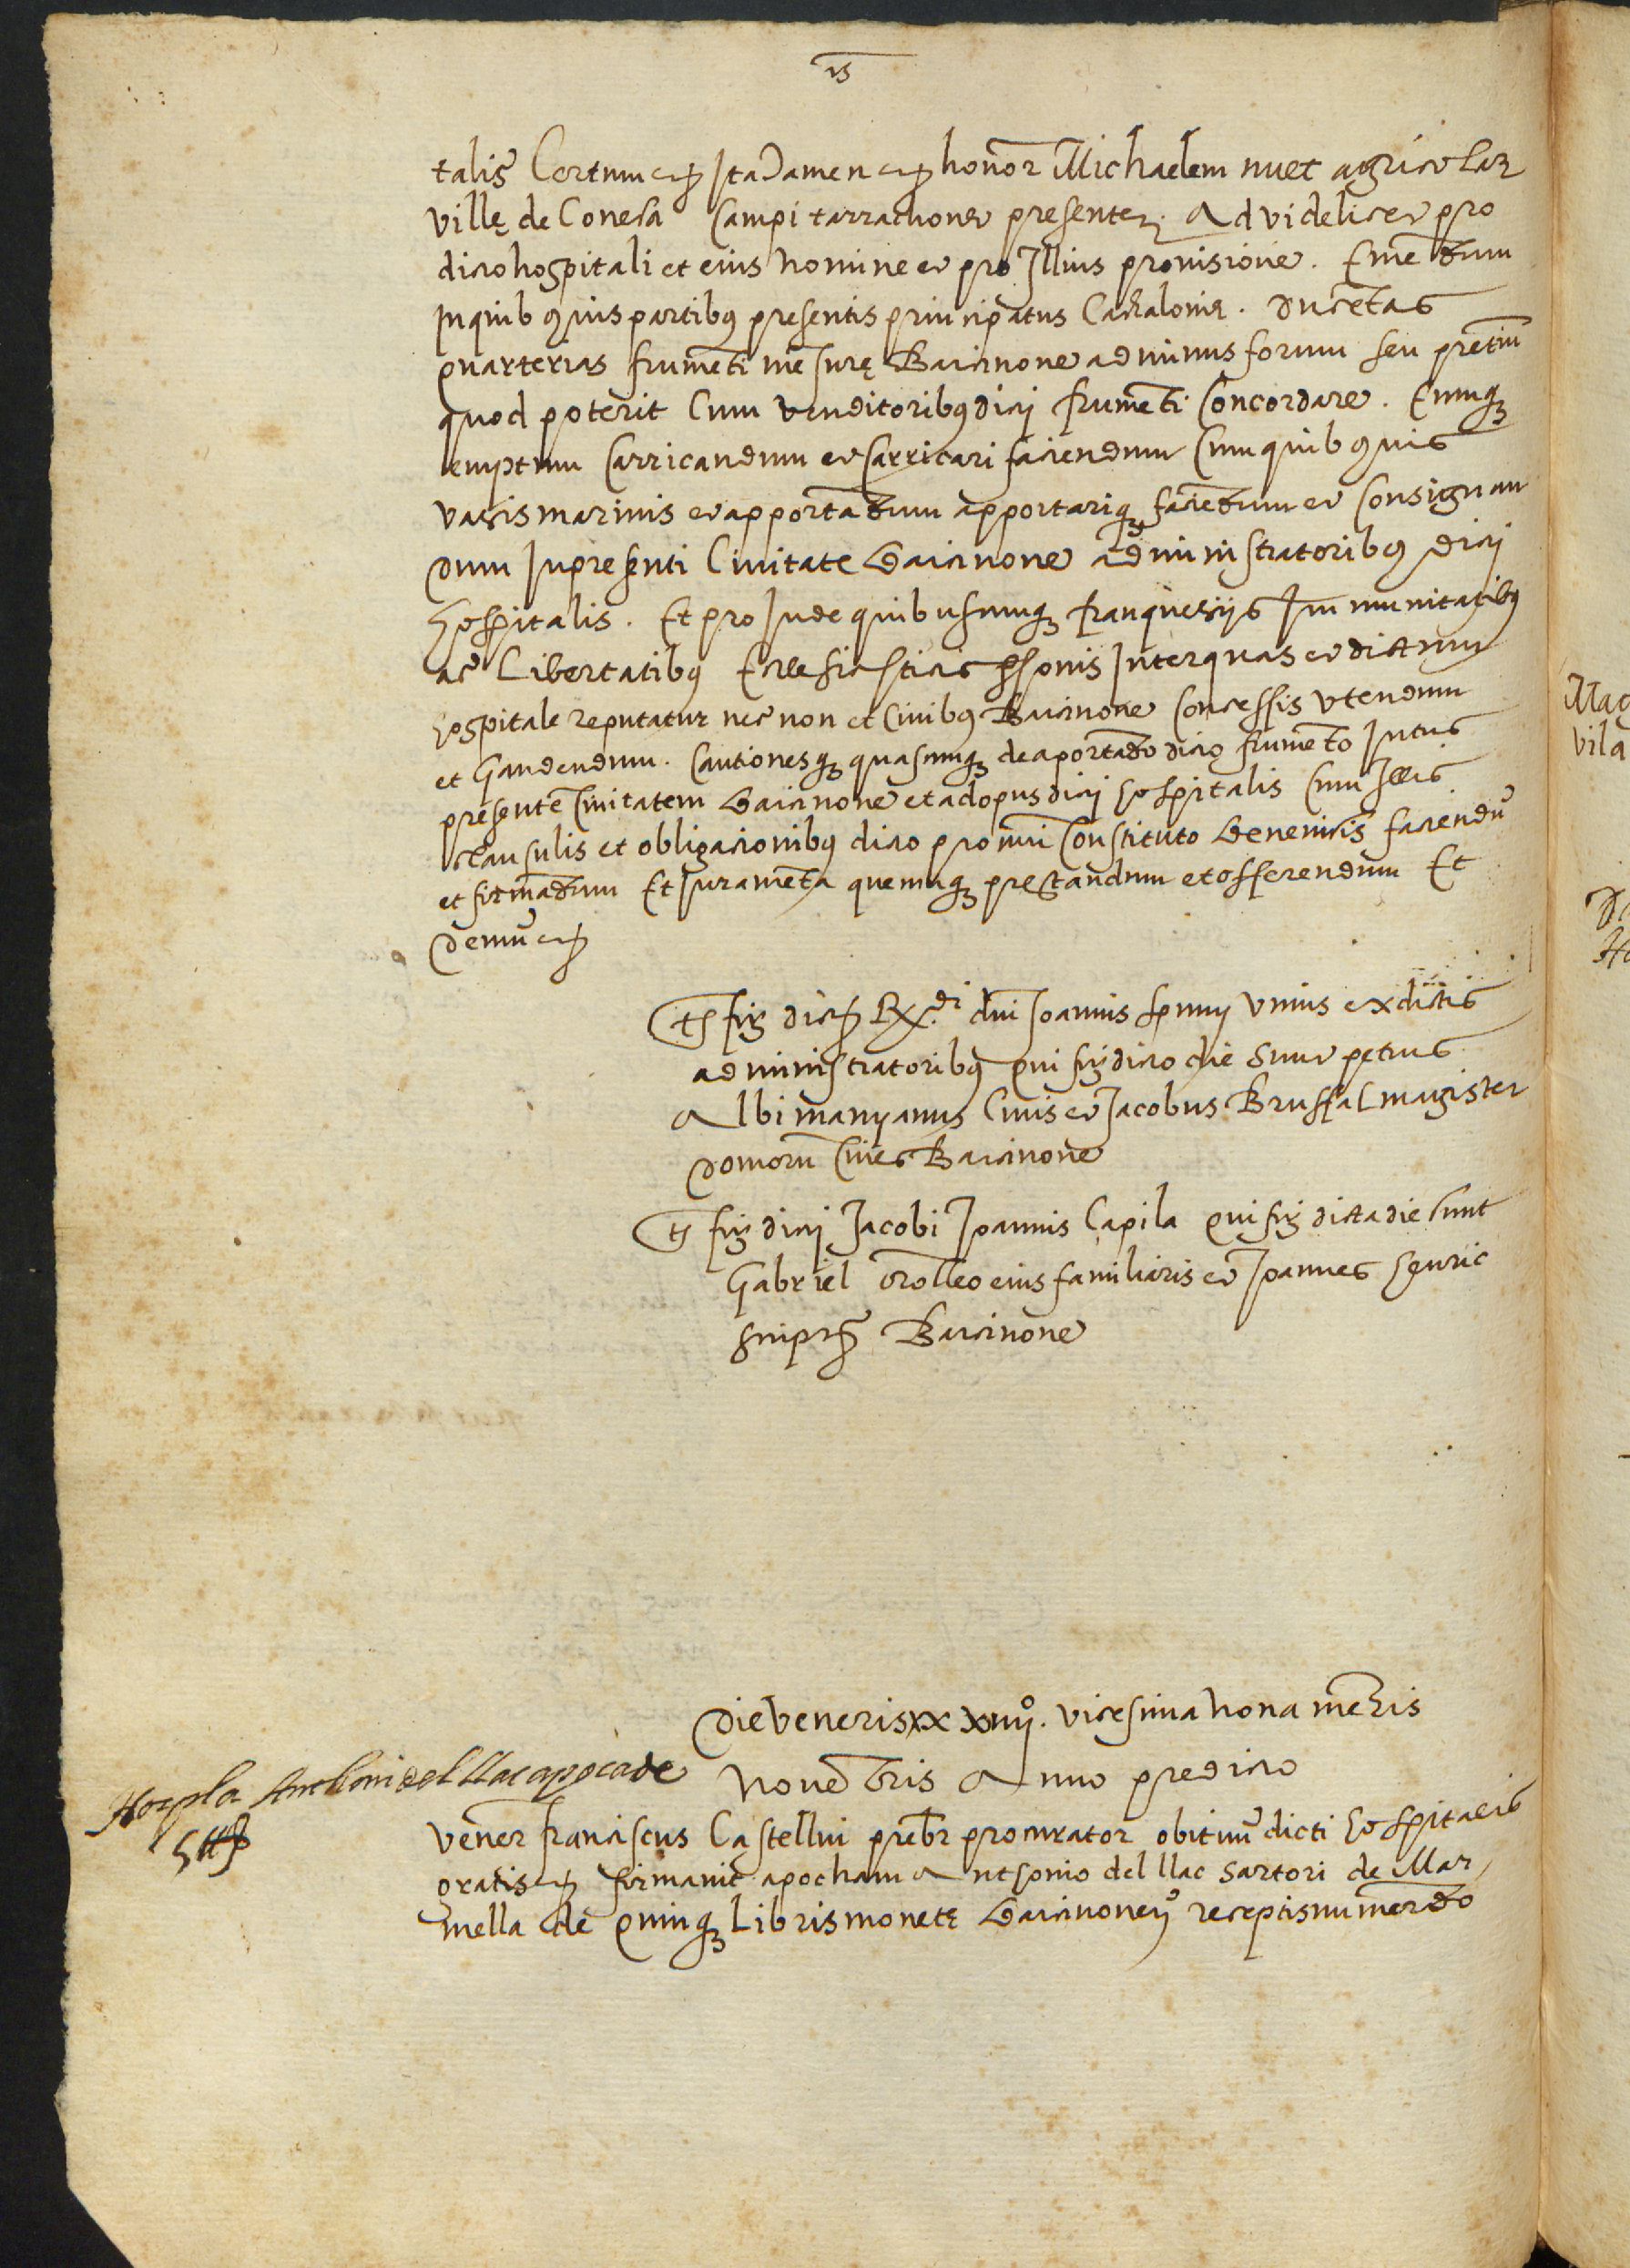 talis Certum etc Ita tamen etc honor Michaelem nuet agricolam
villę de Conesa Campi tarrachone presentem. Ad videlicet pro
dicto hospitali et eius nomine et pro Illius prouisione. Emendum
In quib9uis partibus presentis principatus Cathalonię. ducentas
quarterias frumenti mesurę Barcinone ad minus forum seu pretium
quod poterit Cum venditoribus dicti frumenti Concordare. Eumq3
emptum Carricandum et Carricari faciendum Cum quib9uis
vasis marinis et apportandum apportariq3 faciendum et Consignan
dum In presenti Ciuitate Barcinone administratoribus dicti
hospitalis. Et pro Inde quibuscumq3 franquesiis Immunitatibus
ac Libertatibus Ecclesiasticis personis Inter quas et dictum
hospitale reputatur nec non et Ciuibus Barcinone Concessis vtendum
et Gaudendum. Cautionesq3 quascumq3 de aportando dicto frumento Intus
presentem Ciuitatem Barcinone et ad opus dicti hospitalis Cum Illis
clausulis et obligacionibus dicto procuratori Constituto beneuisis faciendum
et firmandum Et Iuramenta quecumq3 prestandum et offerendum Et
demum etc
ts firme dicti Rdi dni Joannis unius ex dictis
administratoribus qui firme dicto die sunt petrus
Albimanyanus Ciuis et Jacobus Bruffal magister
domorum Ciues Barcinone
ts firme dicti Jacobi Joannis Capila qui firme dicta die sunt
Gabriel eius familiaris et Joannes
scriptor Barcinone
Die veneris xxviiijo. vicesima nona mensis
Nouembris Anno predicto
Hospla Anthoni del llac apoca de
5 ₶
Vener franciscus Castellui prebr procurator obituum dicti hospitalis
gratis etc firmauit apocham Anthonio del llac sartori de Mar
mella de quinq3 Libris monetę Barcinone receptis numerando